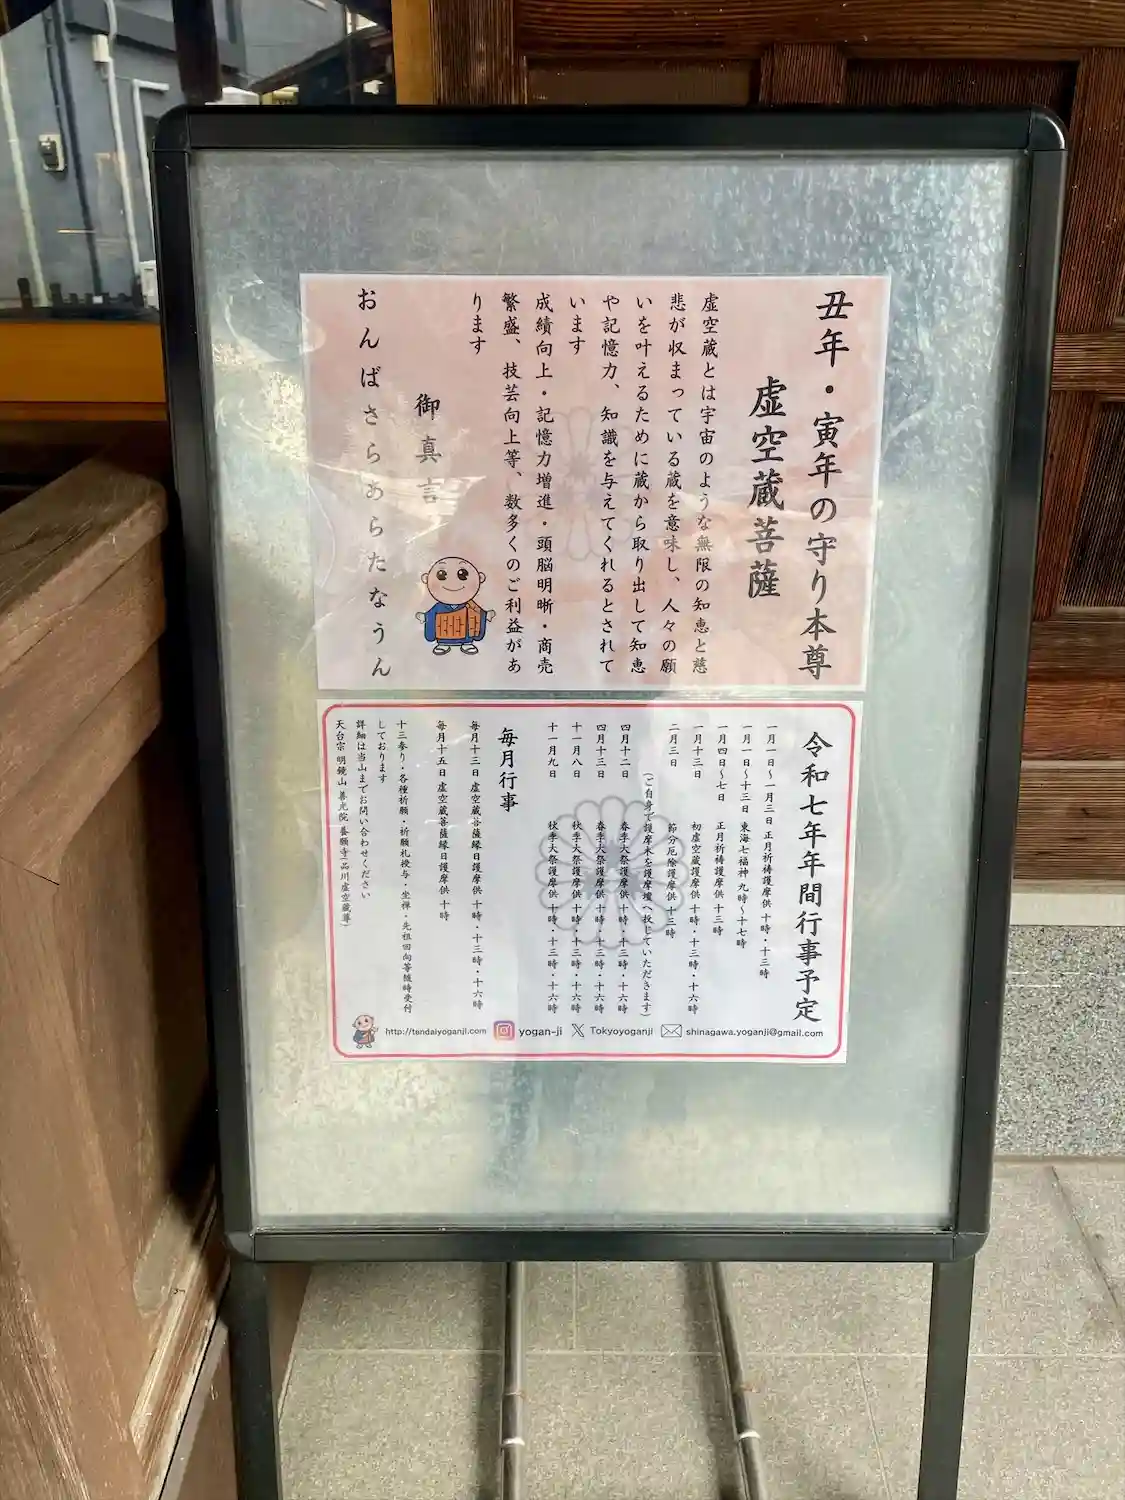 丑年・寅年の守り本尊
虚空蔵菩薩
虚空蔵とは宇宙のような無限の知恵と慈
悲が収まっている蔵を意味し、人々の願
いを叶えるために蔵から取り出して知恵
や記憶力、知識を与えてくれるとされて
います
成績向上・記憶力増進・頭脳明晰・商売
繁盛、技芸向上等、数多くのご利益があ
ります
御真言
おんばさらあらたなうん
令和七年年間行事予定
一月一日～一月三日 正月祈祷護摩供 十時・十三時
一月一日～十三日 東海七福神 九時～十七時
一月四日～七日 正月祈祷護摩供 十三時
一月十三日 初虚空蔵護摩供 十時・十三時・十六時
二月三日 節分厄除護摩供 十三時
(ご自身で護摩木を護摩壇へ投じていただきます)
四月十二日 春季大祭護摩供 十時・十三時・十六時
四月十三日 春季大祭護摩供 十時・十三時・十六時
十一月八日 秋季大祭護摩供 十時・十三時・十六時
十一月九日 秋季大祭護摩供 十時・十三時・十六時
毎月行事
毎月十三日 虚空蔵菩薩縁日護摩供 十時・十三時・十六時
毎月十五日 虚空蔵菩薩縁日護摩供 十時
十三参り・各種祈願・祈願札授与・坐禅・先祖回向等随時受付
しております
詳細は当山までお問い合わせください
天台宗 明鏡山 善光院 養願寺(品川虚空蔵尊)
http://tendaiyoganji.com yogan-ji Tokyoyoganji shinagawa.yoganji@gmail.com